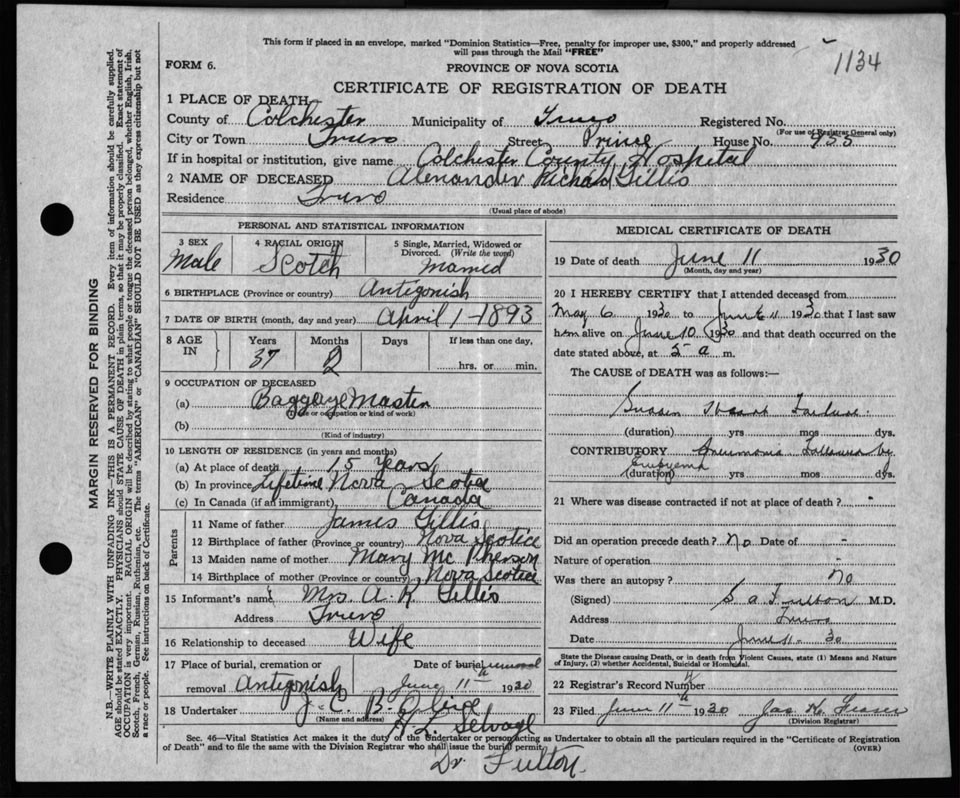 This form if placed in an envelope, marked "Dominion Statistics—Free, penalty for improper use, $300," and properly addressed
will pass through the Mail "FREE"
1134
FORM 6.
PROVINCE OF NOVA SCOTIA
CERTIFICATE OF REGISTRATION OF DEATH
1 PLACE OF DEATH
County of Colchester Municipality of Truro Registered No.
(For use of Registrar General only)
City or Town Truro Street Prince House No. 955
If in hospital or institution, give name Colchester County Hospital
2 NAME OF DECEASED Alexander Richard Gillis
Residence Truro
(Usual place of abode)
PERSONAL AND STATISTICAL INFORMATION
3 SEX 4 RACIAL ORIGIN 5 Single, Married, Widowed or
Divorced. (Write the word)
Male Scotch Married
6 BIRTHPLACE (Province or country) Antigonish
7 DATE OF BIRTH (month, day and year) April 1 - 1893
8 AGE IN Years Months Days If less than one day,
37 2 hrs. or min.
9 OCCUPATION OF DECEASED
(a) Baggage Master
(Trade or occupation or kind of work)
(b)
(Kind of industry)
10 LENGTH OF RESIDENCE (in years and months)
(a) At place of death 15 Years
(b) In province Lifetime Nova Scotia
(c) In Canada (if an immigrant) Canada
Parents
11 Name of father James Gillis
12 Birthplace of father (Province or country) Nova Scotia
13 Maiden name of mother Mary McPherson
14 Birthplace of mother (Province or country) Nova Scotia
15 Informant's name Mrs. A. R. Gillis
Address Truro
16 Relationship to deceased Wife
17 Place of burial, cremation or Date of burial removal
removal Antigonish June 11th 1930
18 Undertaker J. C. B.
(Name and address)
H L Selvage
MEDICAL CERTIFICATE OF DEATH
19 Date of death June 11 1930
(Month, day and year)
20 I HEREBY CERTIFY that I attended deceased from
May 6 1930 to June 11 1930 that I last saw
him alive on June 10 1930 and that death occurred on
date stated above, at 5 a m.
The CAUSE of DEATH was as follows:—
Sudden Heart Failure.
(duration) yrs mos dys.
CONTRIBUTORY Pneumonia followed by
Empyema
(duration) yrs mos dys.
21 Where was disease contracted if not at place of death? -
Did an operation precede death? No Date of -
Nature of operation -
Was there an autopsy? No
(Signed) S a Fulton M.D.
Address Truro
Date June 11 - 30
State the Disease causing Death, or in death from Violent Causes, state (1) Means and Nature
of Injury, (2) whether Accidental, Suicidal or Homicidal.
22 Registrar's Record Number
23 Filed June 11th 1930 Jas H. Fraser
(Division Registrar)
Sec. 46—Vital Statistics Act makes it the duty of the Undertaker or person acting as Undertaker to obtain all the particulars required in the "Certificate of Registration
of Death" and to file the same with the Division Registrar who shall issue the burial permit.
(OVER)
Dr. Fulton.
MARGIN RESERVED FOR BINDING
N.B.—WRITE PLAINLY WITH UNFADING INK—THIS IS A PERMANENT RECORD. Every item of information should be carefully supplied.
AGE should be stated EXACTLY. PHYSICIANS should STATE CAUSE OF DEATH in plain terms, so that it may be properly classified. Exact statement of
OCCUPATION is very important. RACIAL ORIGIN will be described by stating to what people or tongue the deceased person belonged, whether English, Irish,
Scotch, French, German, Russian, Ruthenian, etc. The terms "AMERICAN" or "CANADIAN" SHOULD NOT BE USED as they express citizenship but not
a race or people. See instructions on back of Certificate.